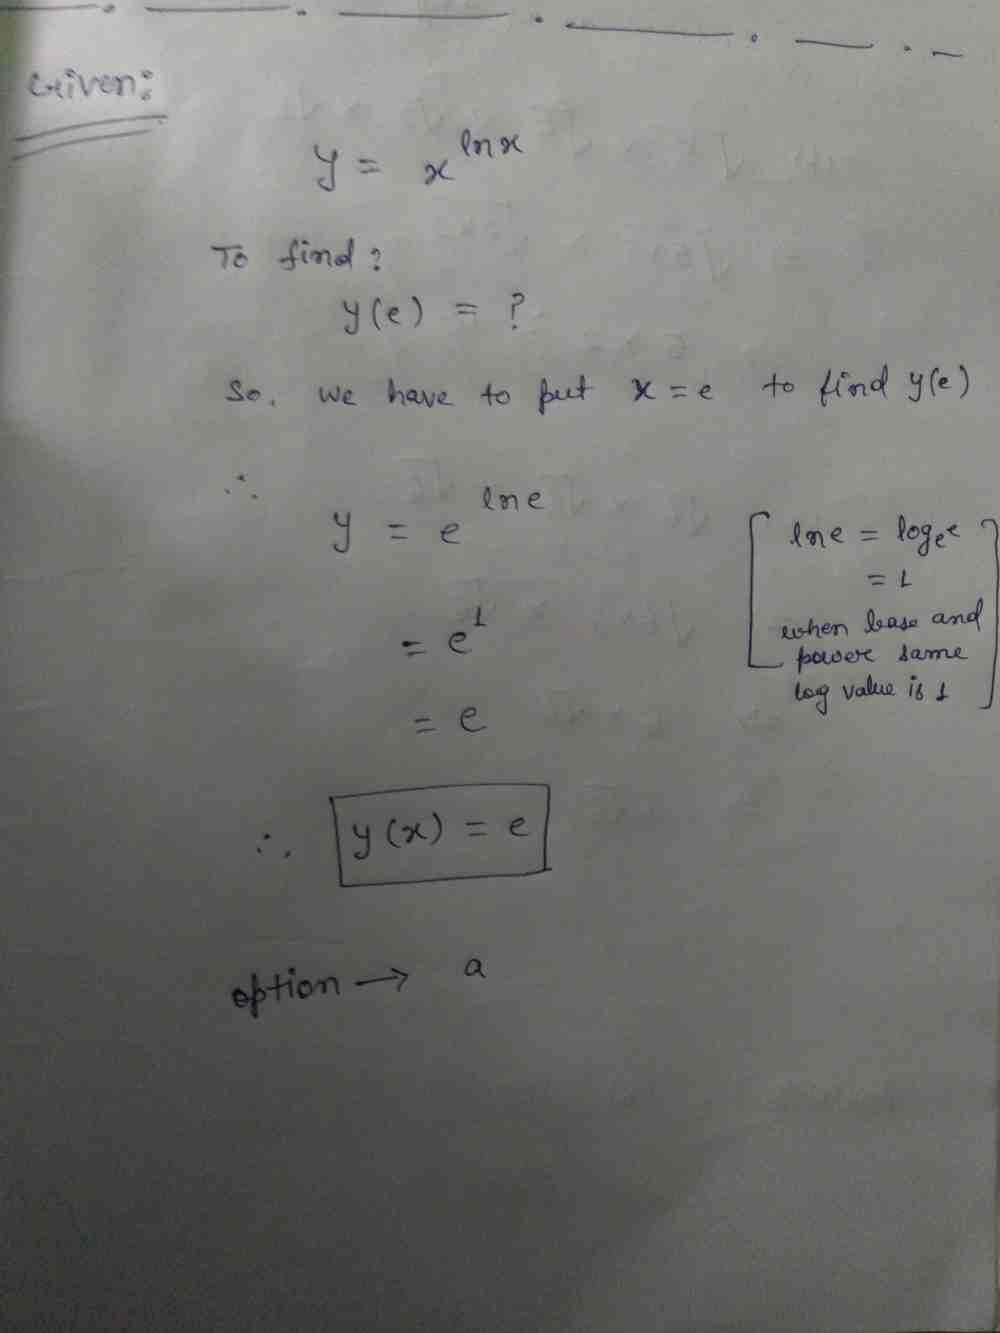 Given:
y = x^ln x
To find?
y(e) = ?
So, we have to put x = e to find y(e)
∴ y = e^ln e
[ ln e = log_e e
= 1
when base and
power same
log value is 1 ]
= e^1
= e
∴ y(x) = e
option → a